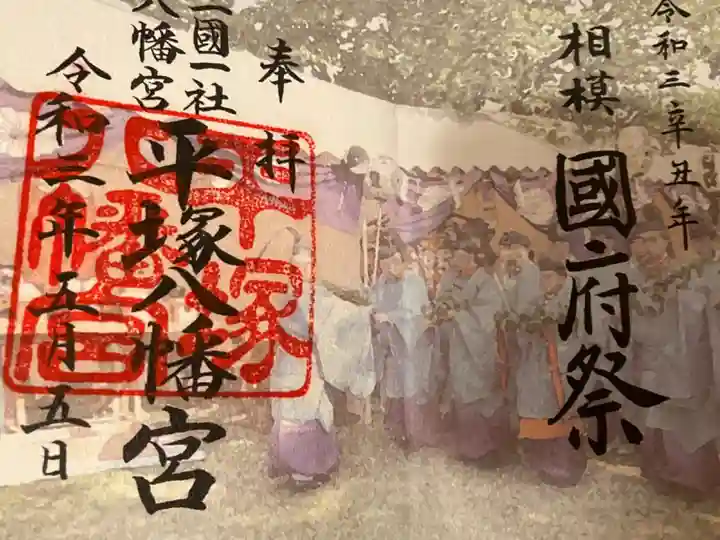 令和三辛丑年
相模
國二府祭
奉拝
一國一社
八幡宮
平塚八幡宮
令和三年五月五日
平塚
八幡宮